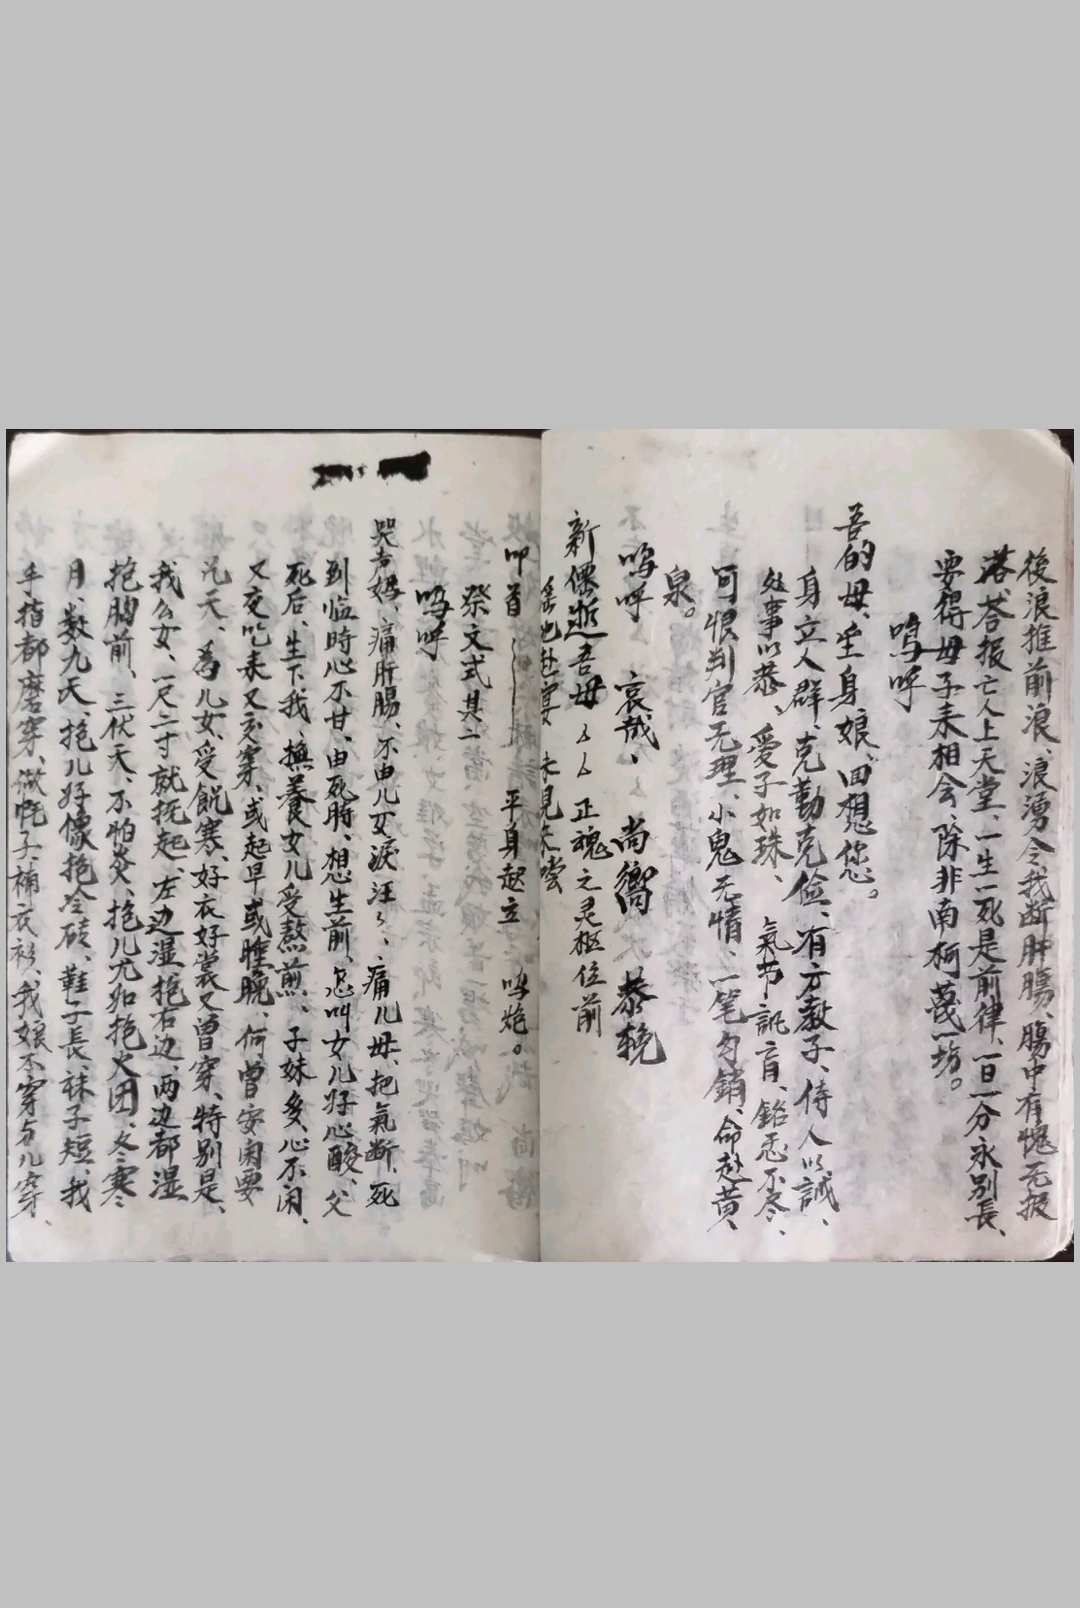 後浪推前浪、浪湧令我断肝腸、腸中有愧无报
荅报亡人上天堂、一生一死是前律、一日一分永别長、
要得母子来相会、除非南柯萝一坊。
嗚呼
吾的母、生身娘、回想您。
身立人群、克勤克俭、有方教子、侍人以誠、
处事以恭、愛子如珠、氣节訛育、銘志不冬、
可恨判官无理、小鬼无情、一笔勾銷、命赴黄、
泉。
嗚呼 哀哉、尚嚮 恭輓
新偎逝吾母 正魂之灵柩位前
赴宴 未見未嚐
叩首 平身起立 鸣炮。
祭文式其二
嗚呼
哭老妈、痛肝腸、不由儿女淚汪〻、痛儿母、把氣断、死
到临時心不甘、由死時、想生前、忍叫女儿好心酸、父
死后、生下我、撫養女儿受熬煎、子妹多、心不闲、
又交吃来又交穿、或起早或睡晚、何曾安闲要
几天、為儿女、受飢寒、好衣好裳又曾穿、特别是、
我么女、一尺二寸就抚起、左边湿抱右边、两边都湿
抱胸前、三伏天、不怕炎、抱儿尤如抱火团、冬寒
月、数九天、抱儿好像抱冷砖、鞋子長、袜子短、我
手指都磨穿、做帐子、補衣衫、我娘不穿与儿穿、